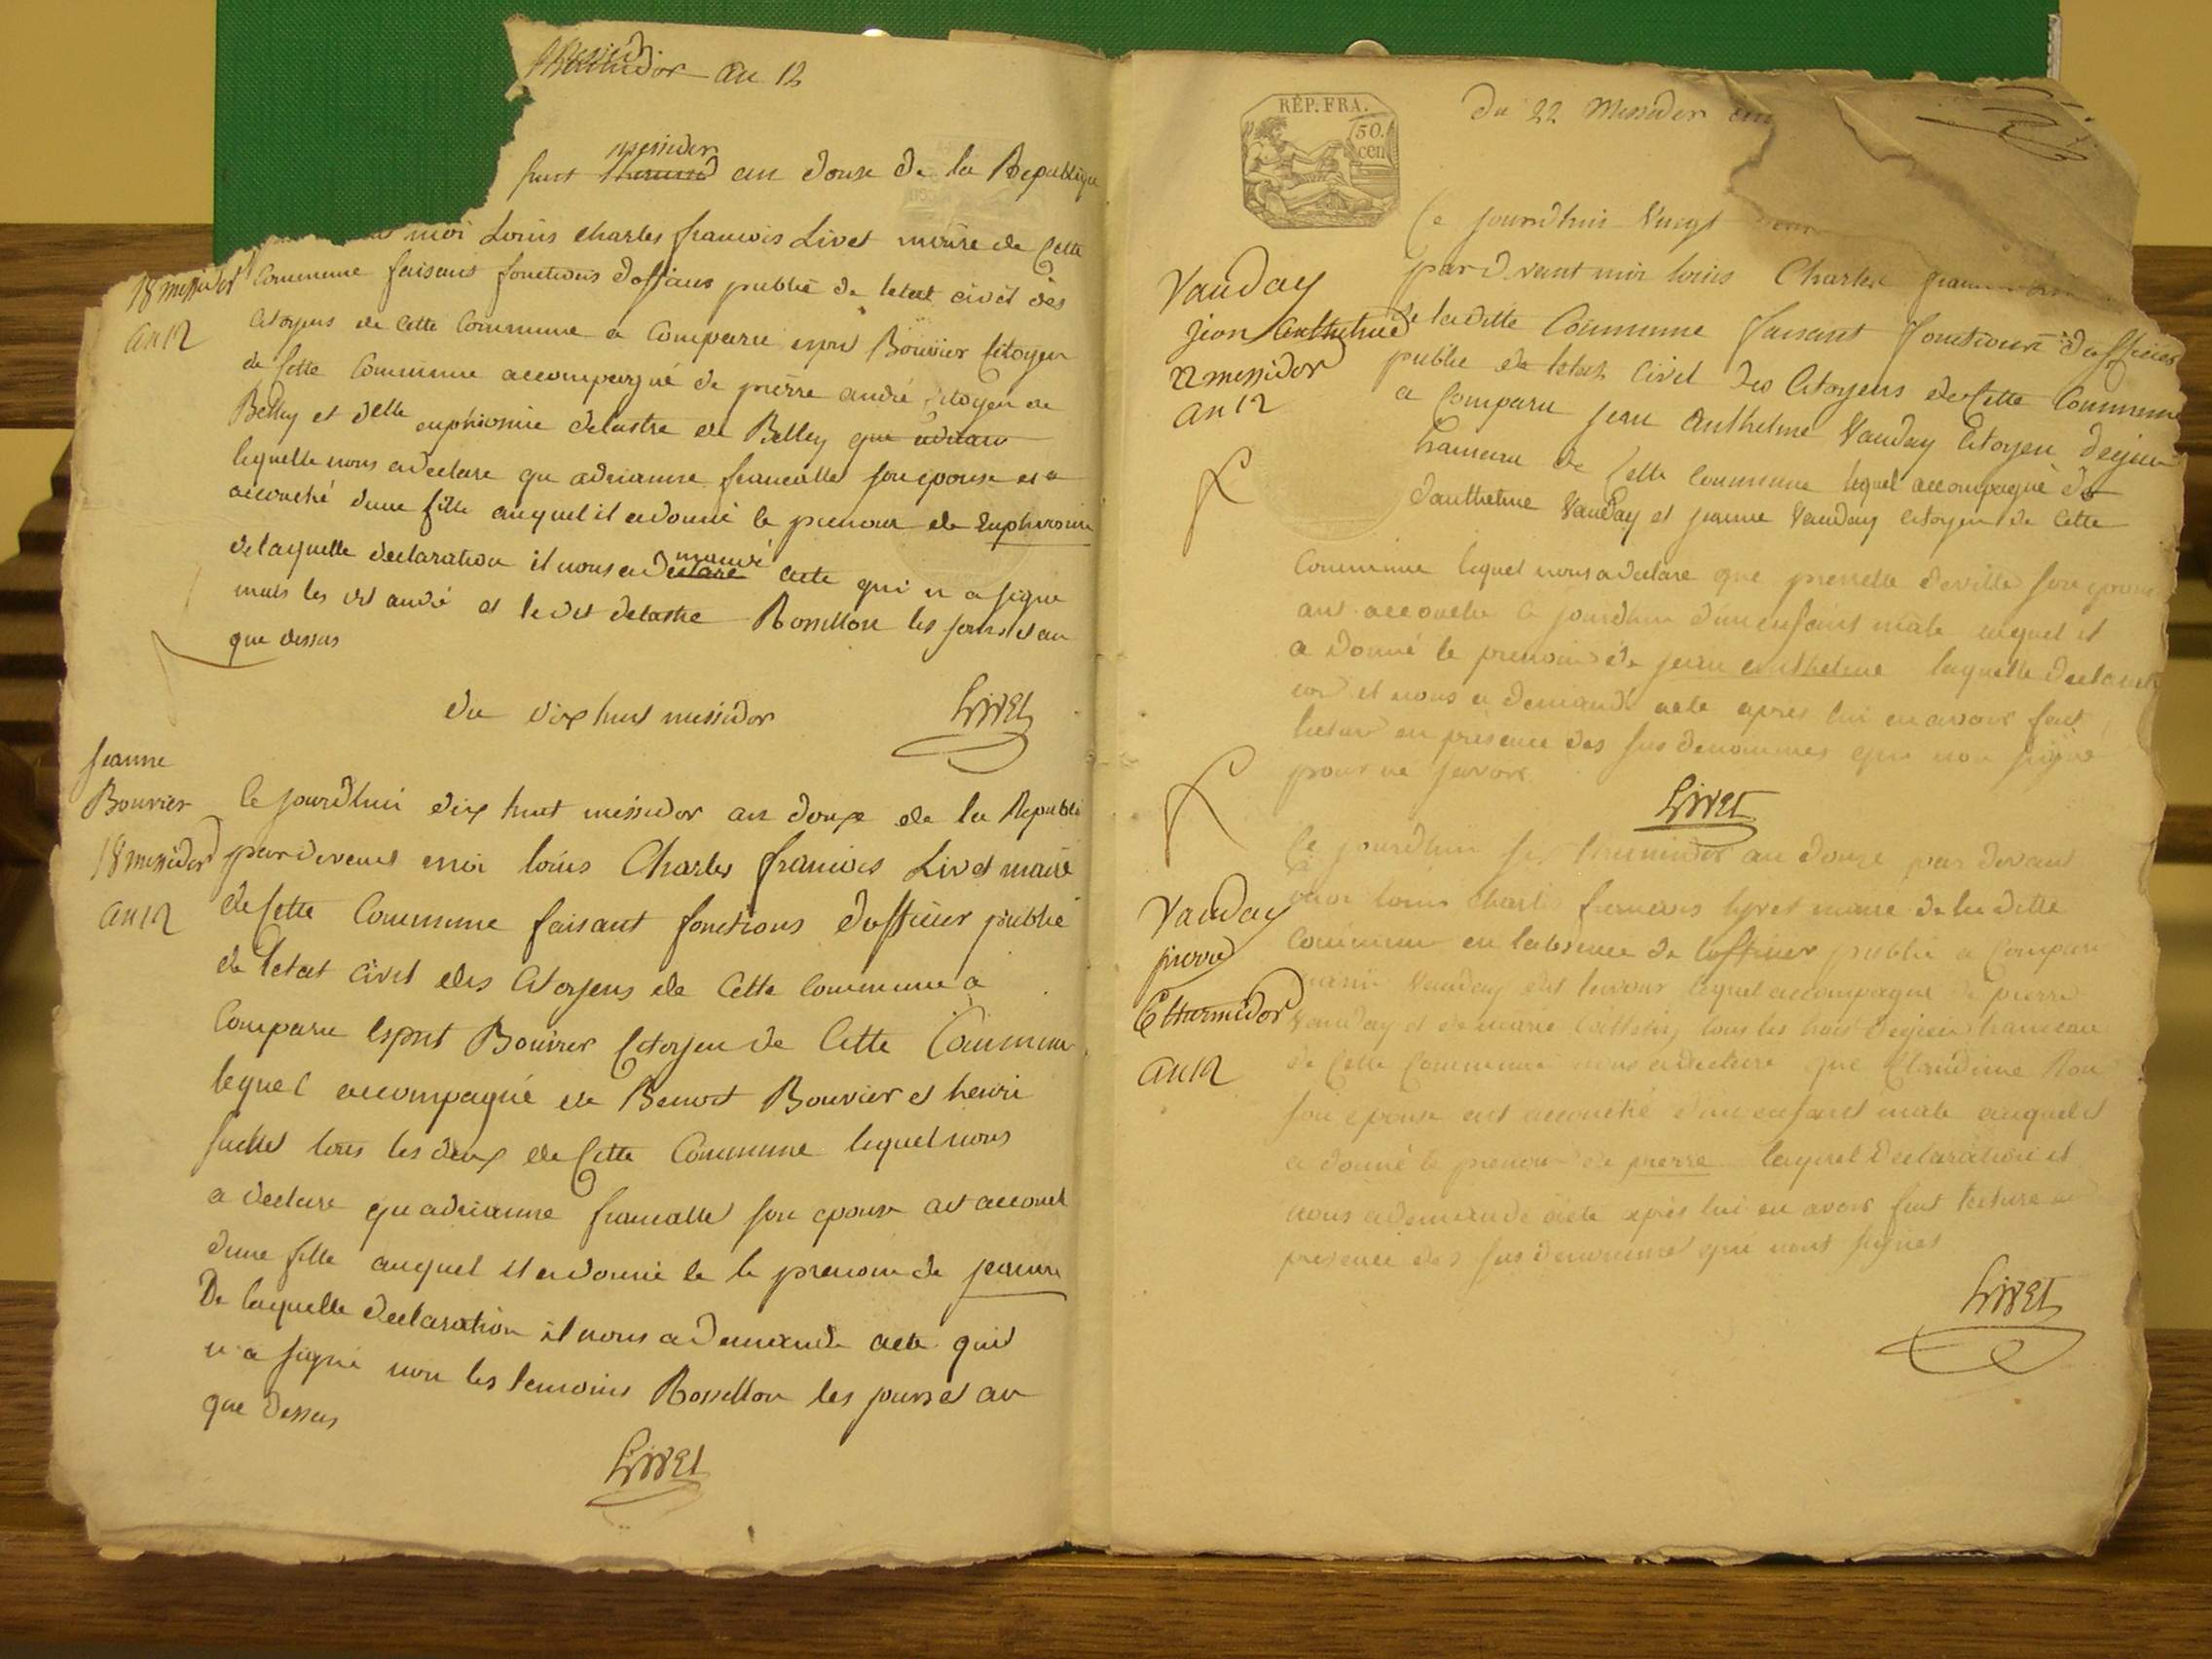 messidor an 12
messidor
huit an douze de la Republique
moi Louis charles francois Livet maire de Cette
18 messidor
an 12
Commune faisant fonctions dofficier public de letat civil des
Citoyens de Cette Commune a Comparu esprit Bouvier Citoyen
de Cette Commune accompagné de pierre andré Citoyen de
Belley et delle euphrosine delastre de Belley
lequelle nous a declare que adrianne francallet son epouse et a
accouché dune fille auquel il a donné le prenom de Euphrosine
delaquelle declaration il nous a demandé acte qui n a signe
mais les dit andré et le dit delastre Rossillon les jours et an
que dessus
Livet
du dix huit messidor
Jeanne
Bouvier
18 messidor
an 12
Ce jourdhui dix huit messidor an douze de la Republi
pardevent moi louis Charles francois Livet maire
de Cette Commune faisant fonctions dofficier public
de letat civil des Citoyens de Cette Commune a
Comparu esprit Bouvier Citoyen de Cette Commune
lequel accompagné de Benoit Bouvier et henri
tous les deux de Cette Commune lequel nous
a declare que adrianne francallet son epouse act accouch
dune fille auquel il a donné le le prenom de jeanne
De laquelle declaration il nous a demande acte quil
n a signé non les temoins Rossillon les jours et an
que dessus
Livet
RÉP. FRA.
50.
cen
du 22 Messidor an
Ce jourdhui vingt
Vauday
jean anthelme
22 messidor
an 12
pardevant moi louis Charles
de ladite Commune faisant fonctions dofficier
public de letat Civil des Citoyens de Cette Commune
a Comparu jean anthelme Vauday Citoyen
hameau de Cette Commune lequel accompagné de
danthelme Vauday et jeanne Vauday Citoyen de Cette
Commune lequel nous a declare que pernette deville son epouse
ant accouche ce jourdhui dun enfant male auquel il
a Donné le prenom de jean anthelme laquelle declarat
ion il nous a demandé acte apres lui en avoir fait
lecture en presence des sus denommes qui non signe
pour ne savoir
Livet
Ce jourdhui six thermidor an douze par devant
moi louis charles francois lyvet maire de la ditte
Vauday
pierre
6 thermidor
an 12
Commune en labsence de lofficier public a Comparu
Vauday dit lequel accompagné de pierre
Vauday et de marie tous les trois hameau
de Cette Commune nous a declare que Claudine
son epouse ant accouché dun enfant male auquel il
a donné le prenom de pierre laquel declaration il
nous a demandé acte après lui en avoir fait lecture en
presence des sus denommé qui nont signes
Livet